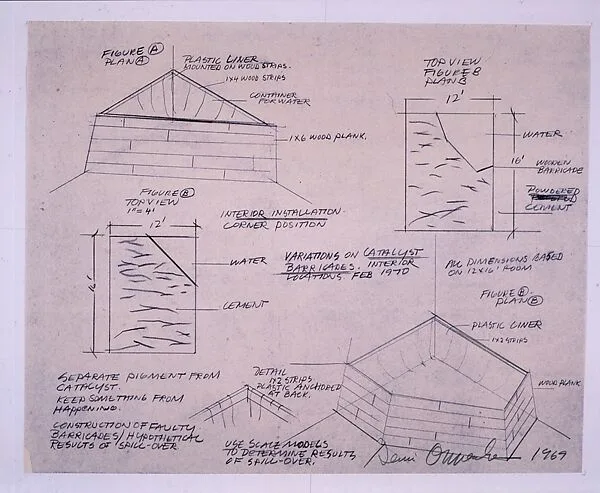 FIGURE Ⓐ
PLAN Ⓐ
PLASTIC LINER
MOUNTED ON WOOD STRIPS.
1X4 WOOD STRIPS
CONTAINER
FOR WATER
1X6 WOOD PLANK.
TOP VIEW
FIGURE B
PLAN B
12'
WATER
16'
WOODEN
BARRICADE
POWDERED
CEMENT
FIGURE Ⓑ
TOP VIEW
1"=4'
12'
16'
WATER
CEMENT
INTERIOR INSTALLATION
CORNER POSITION
VARIATIONS ON CATALYST
BARRICADES. INTERIOR
LOCATIONS. FEB 1970
ALL DIMENSIONS BASED
ON 12X16' ROOM
FIGURE Ⓑ
PLAN Ⓑ
PLASTIC LINER
1X2 STRIPS
WOOD PLANK
SEPARATE PIGMENT FROM
CATALYST.
KEEP SOMETHING FROM
HAPPENING.
CONSTRUCTION OF FAULTY
BARRICADES/HYPOTHETICAL
RESULTS OF SPILL-OVER.
DETAIL
1X2 STRIPS
PLASTIC ANCHORED
AT BACK.
USE SCALE MODELS
TO DETERMINE RESULTS
OF SPILL-OVER.
1969